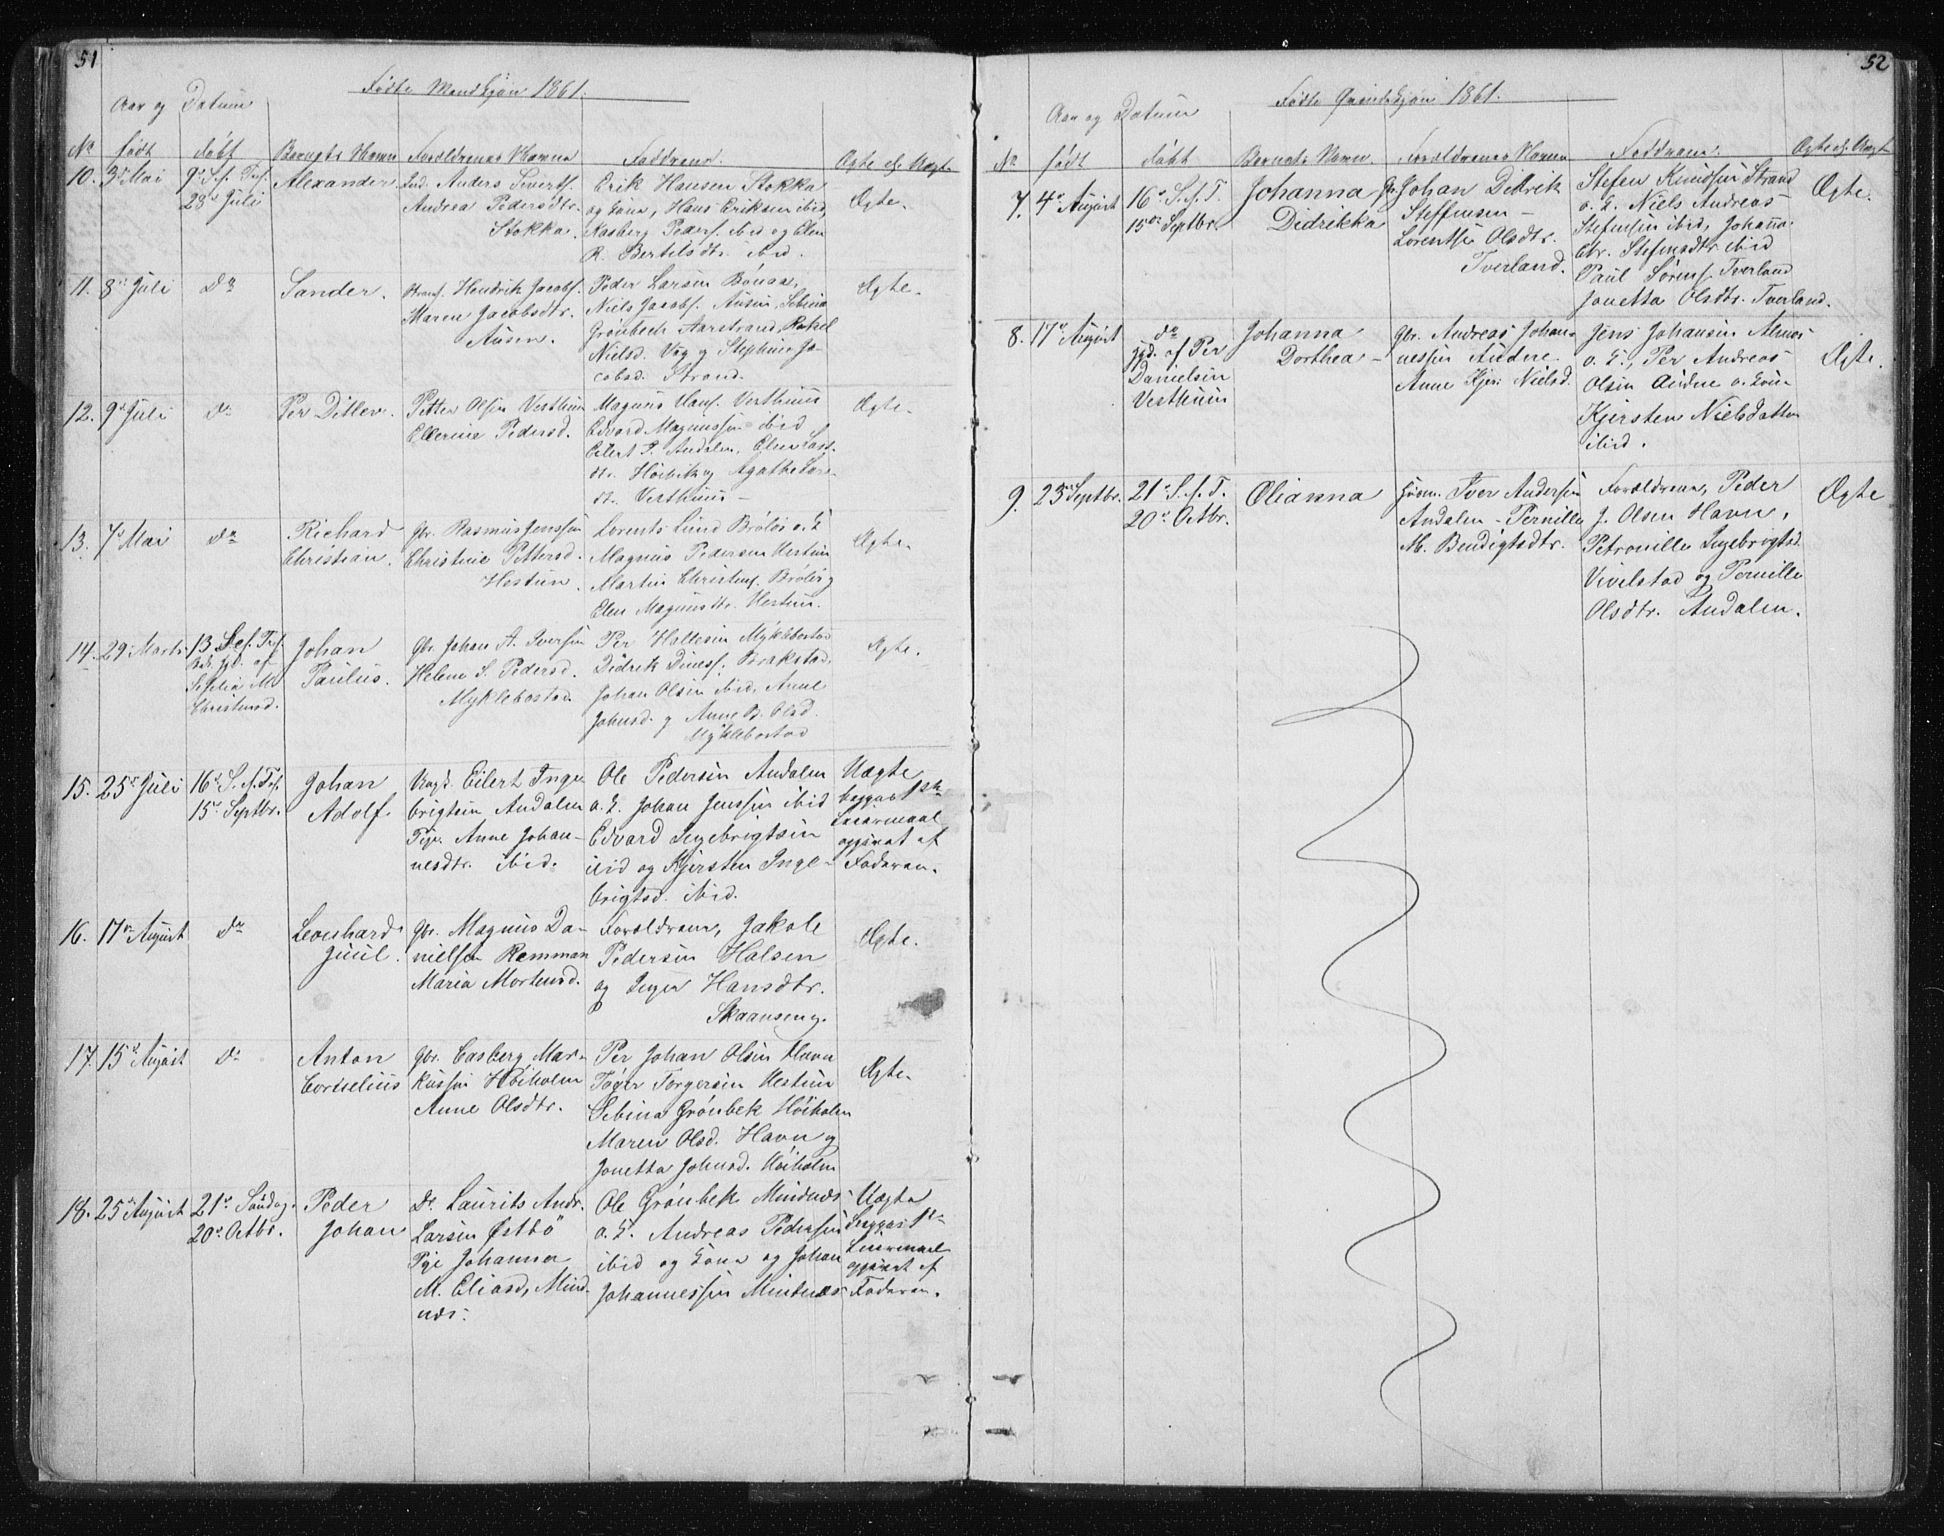 51
Fødte Mandkjøn 1861.
Aar og Datum
No født døbt Barnets Navn Forældrenes Navne Faddrene. Ægte el. Uægte
10. 3d Mai
28de Juli
Alexander
Anders Siverts.
Andrea Pedersdtr.
Stokka.
Erik Hansen Stokka
og Kona, Hans Eriksen ibid,
Kasberg Peders. ibid og Elen
R. Bertelsdtr. ibid.
Ægte.
11. 8de Juli
do
Sander.
Hendrik Jacobs.
Maren Jacobsdtr.
Ausen.
Peder Larsen
Niels Jacobs. Ausen, Sebina
Grönbech Aarstrand, Rakel
Nielsd. Vog og Stephine Ja-
cobsd. Strand.
Ægte.
12. 9de Juli
do
Per Ditlev.
Petter Olsen Vesthuun
Ellerine Pedersd.
Magnus Hans. Vesthuus
Edvard Magnussen ibid
Eilert P. Andalen, Elen Lars-
dtr. Høivik og Agathe Lars-
dtr. Vesthuus -
Ægte.
13. 7de Mai
do
Richard
Christian.
Gbr. Rasmus Jenssen
Christine Pettersd.
Hestun.
Lorents Lund Brøløs o. K.
Magnus Pedersen Hestun
Martin Christens. Brøløs og
Elen Magnusdtr. Hestun.
Ægte.
14. 29 Marts
13 S. e. Tref.
Christensd.
Johan
Paulus.
Gbr. Johan A. Iversen
Helene S. Pedersd.
Myklebostad
Per Hallesen Myklebostad
Didrik Dines. Brakstad,
Johan Olsen ibid, Anne
Johnsd. og Anne B. Olsd.
Myklebostad
Ægte.
15. 25de Juli
16de S. e. Tref.
15de Septbr.
Johan
Adolf.
Ungk. Eilert Inge-
brigtsen Andalen
Pige Anne Johan-
nesdtr. ibid.
Ole Pedersen Andalen
o. K. Johan Jenssen ibid
Edvard Ingebrigtsen
ibid og Kjersten Inge-
brigtsd. ibid.
Uægte
begges 1ste
Leiermaal
opgivet af
Faderen.
16. 17de August
do
Leonhard
Juul.
Gbr. Magnus Da-
nielsen Remman
Maria Mortensd.
Forældrene, Jakob
Pedersen Halsen
og Inger Hansdtr.
Skaanseng.
Ægte.
17. 15de August
do
Anton
Cornelius
Gbr. Casberg Mar-
kussen Høiholm
Anne Olsdtr.
Per Johan Olsen Havn
Tøger Torgersen Hestun
Sebina Grönbek Høiholm
Maren Olsd. Havn og
Jonetta Johnsd. Høiholm
Ægte.
18. 25de August
21de Søndag
20de Octbr.
Peder
Johan
Laurits Andr.
Larsen Østbö
Pige Johanna
M. Eliasd, Mind-
næs.
Ole Grönbek Mindnæs
o. K. Andreas Pedersen
ibid og Kona og Johan
Johannessen Mindnæs
Uægte
begges 1ste
Leiermaal
opgivet af
Faderen.
52
Fødte Qvindekjøn 1861.
Aar og Datum
No født døbt Barnets Navn. Forældrenes Navne Faddrene. Ægte el. Uægt
7. 4de August
16de S. e. T.
15de Septbr.
Johanna
Didrikka
Gbr. Johan Didrik
Steffensen -
Lorentse Olsdtr.
Tverland.
Stefen Knudsen Strand
o. K. Niels Andreas
Stefensen ibid, Johanna
Chr. Stefensdtr. ibid
Paul Sørens. Tverland
Jonetta Olsdtr. Tverland.
Ægte.
8. 17de August
do
hjd. af Per
Danielsen
Vesthuun
Johanna
Dorthea -
Gbr. Andreas Johan-
nessen Audne
Anne Kjer. Nielsd.
Jens Johansen Alnes
o. K., Per Andreas
Olsen Audne o. Kone
Kjersten Nielsdatter
ibid.
Ægte.
9. 23de Septbr.
21de S. e. T.
20de Octbr.
Olianna
Huusm. Iver Andersen
Andalen - Pernille
M. Bendigtsdtr.
Forældrene, Peder
J. Olsen Havn,
Petronille Ingebrigtsd.
Vivelstad og Pernille
Olsdtr. Andalen.
Ægte